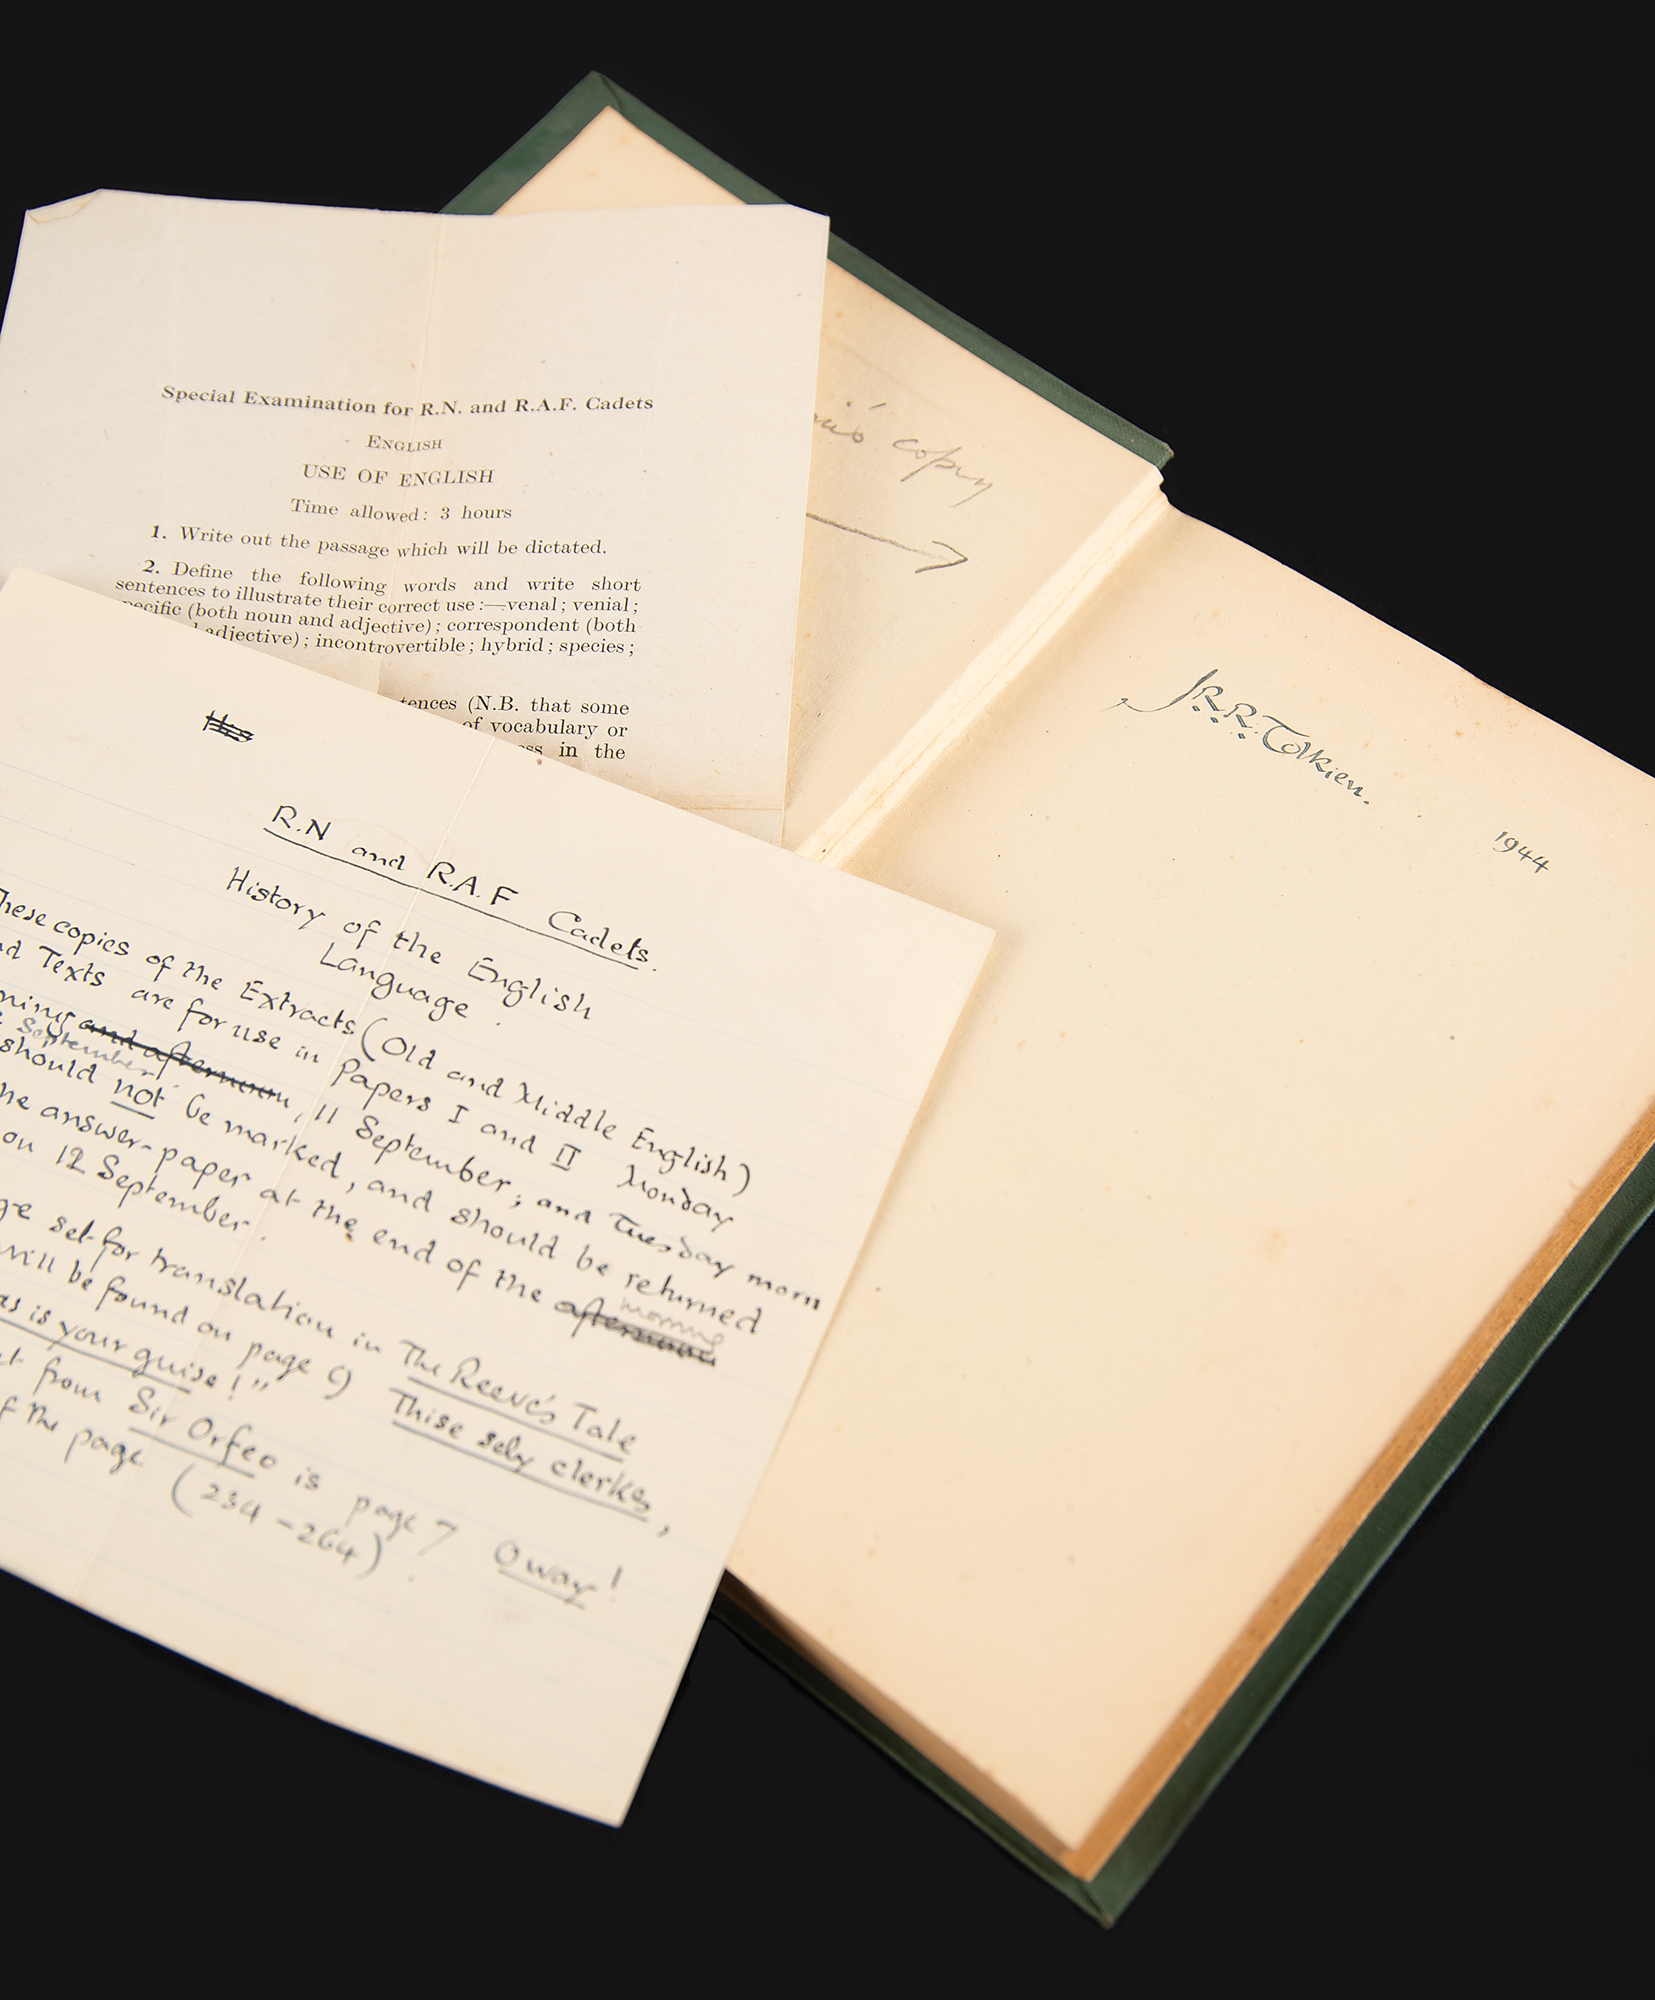 Special Examination for R.N. and R.A.F. Cadets
ENGLISH
USE OF ENGLISH
Time allowed: 3 hours
1. Write out the passage which will be dictated.
2. Define the following words and write short
sentences to illustrate their correct use :—venal ; venial ;
pecific (both noun and adjective) ; correspondent (both
adjective) ; incontrovertible ; hybrid ; species ;
tences (N.B. that some
of vocabulary or
ss in the
R.N and R.A.F Cadets.
History of the English
Language.
hese copies of the Extracts (Old and Middle English)
nd Texts are for use in Papers I and II Monday
ning and afternoon, 11 September; and Tuesday morn
September
should not be marked, and should be returned
he answer-paper at the end of the afternoon
morning
on 12 September.
ge set for translation in The Reeve's Tale
will be found on page 9) Thise sely clerkes,
as is your guise!"
ct from Sir Orfeo is page 7 O way!
f the page (234-264).
copy
J.R.R. Tolkien.
1944